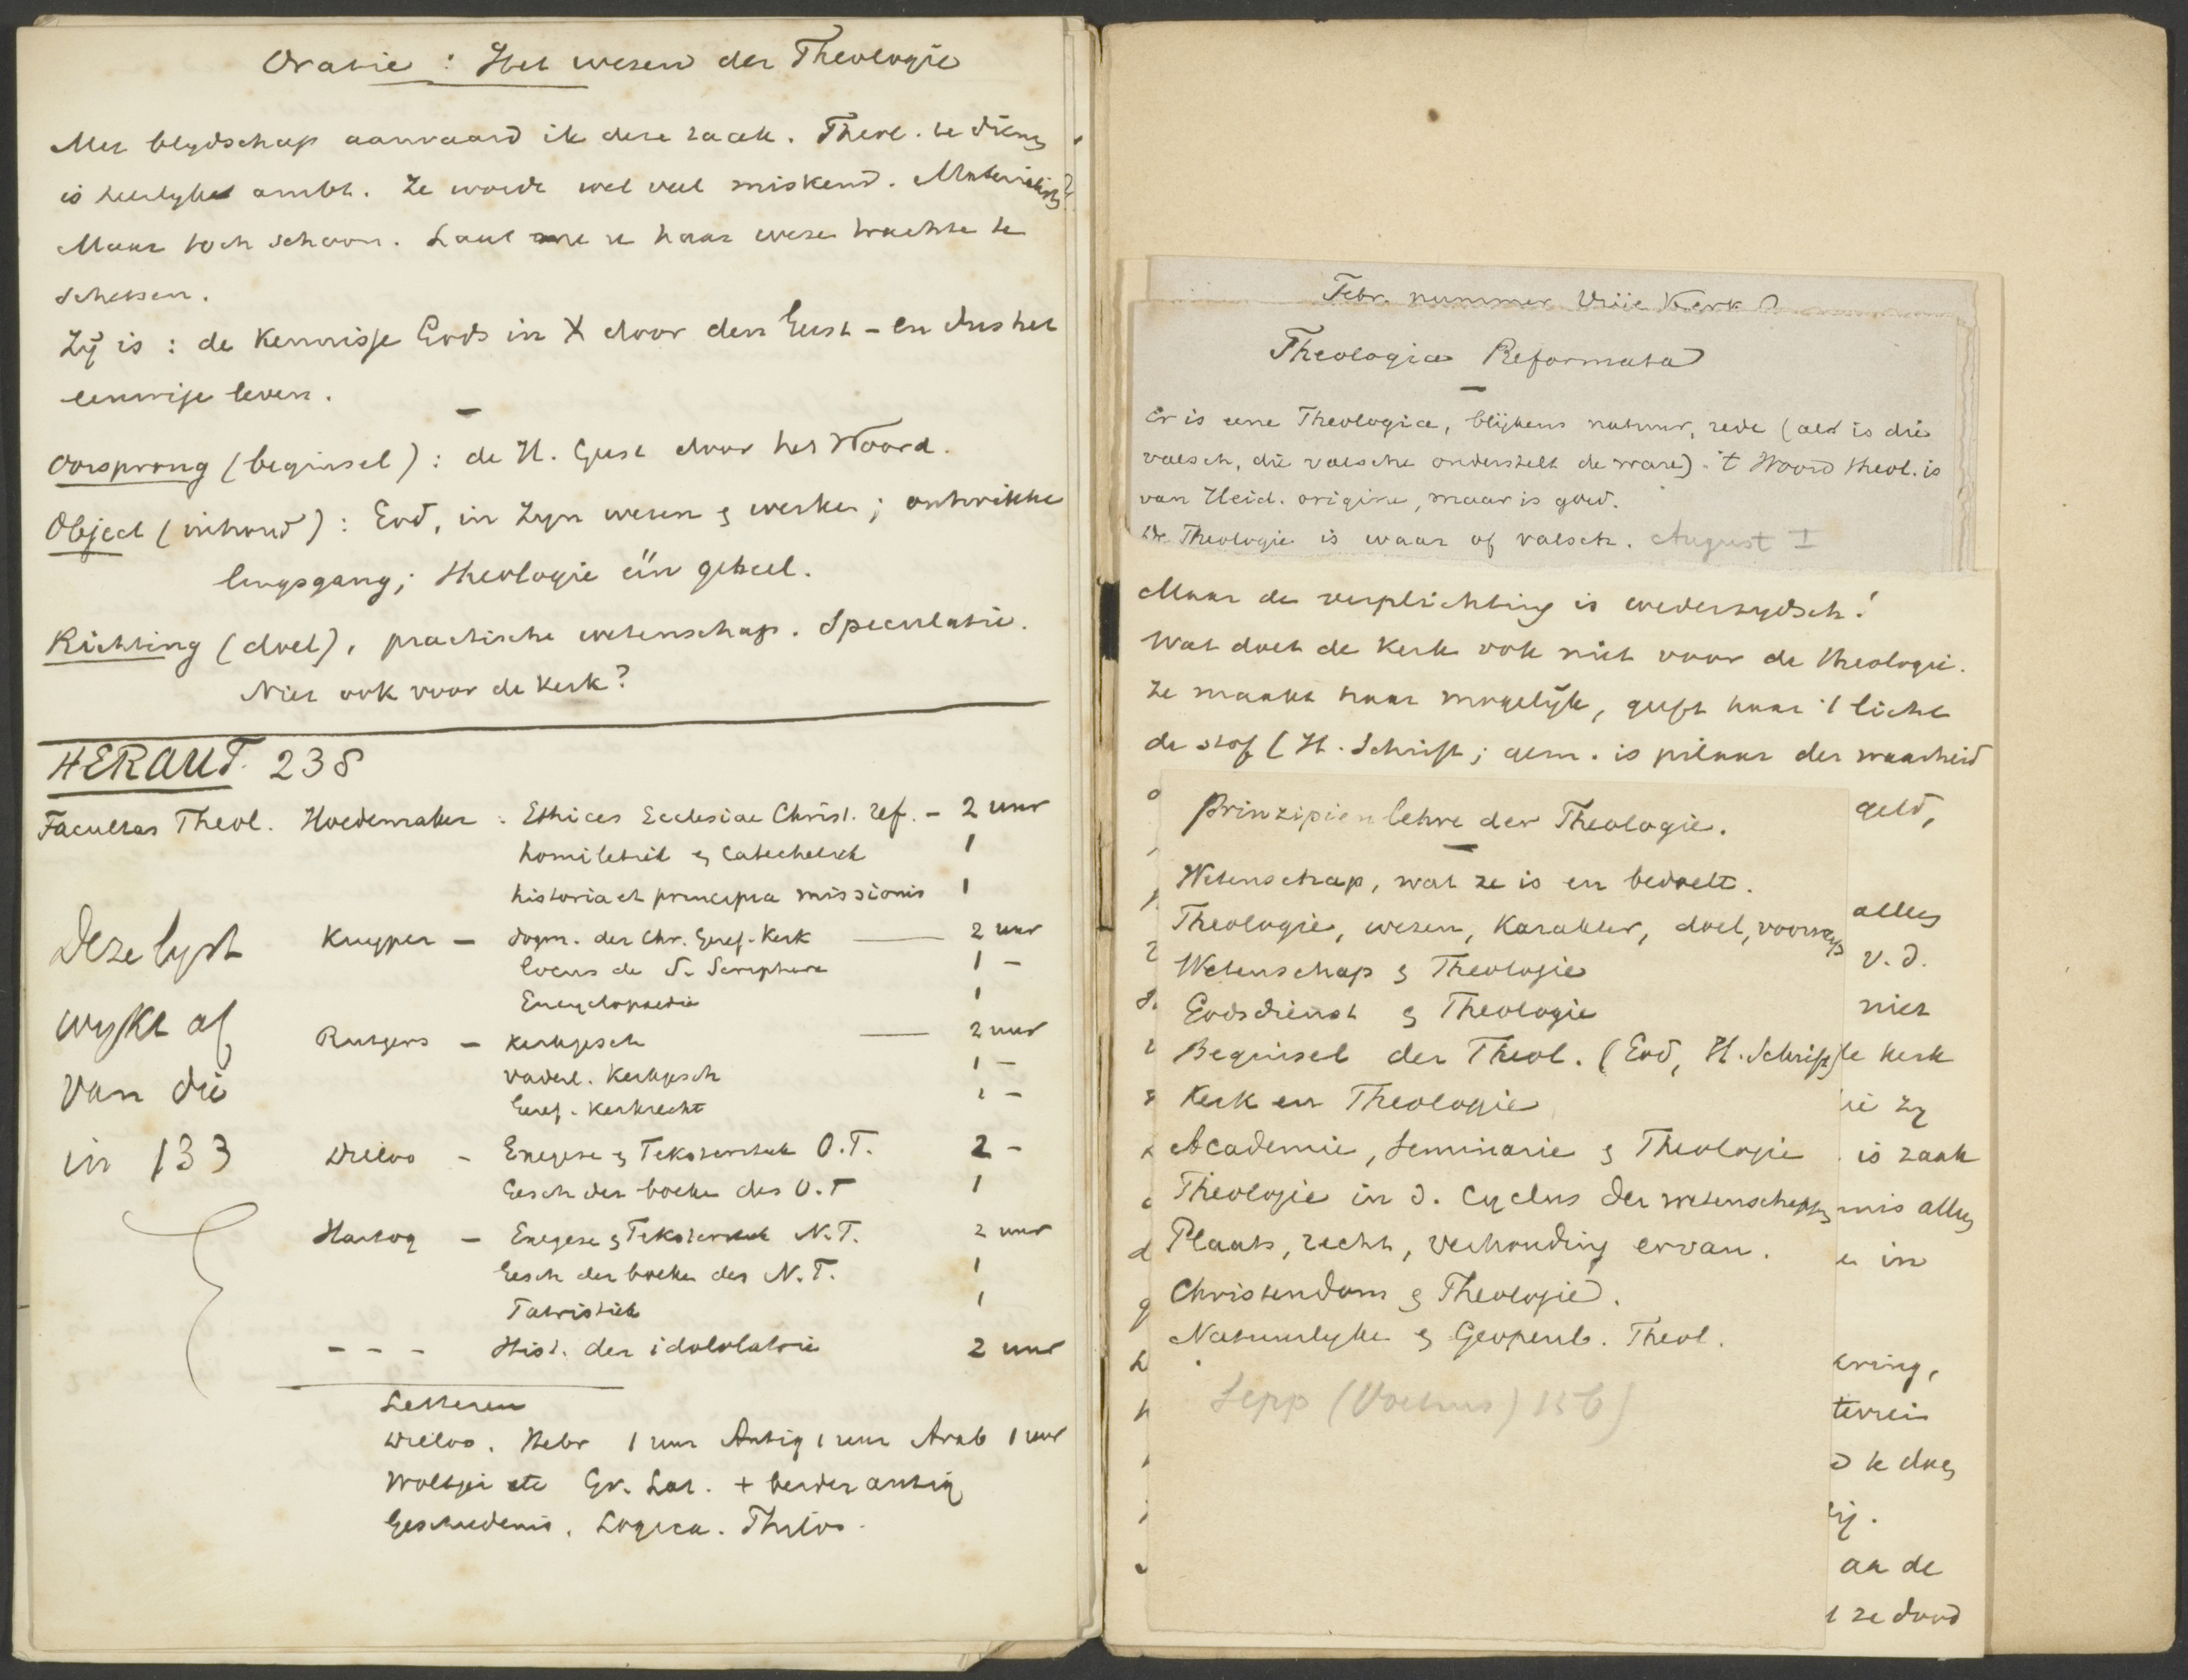 Oratie : Het wezen der Theologie
Met blydschap aanvaard ik deze taak. Theol. te dienen
is heerlyk ambt. Ze wordt wel veel miskend. Materialisten
Maar toch schoon. Laat me u haar wezen trachten te
schetsen.
Zij is : de kennisse Gods in X door den Geest – en dus het
eeuwige leven.
Oorsprong (beginsel) : de H. Geest door het Woord.
Object (inhoud) : God, in Zyn wezen & werken ; ontwikke
lingsgang ; theologie één geheel.
Richting (doel), practische wetenschap. Speculatie.
Niet ook voor de Kerk?
HERAUT. 238
Facultas Theol. Hoedemaker : Ethices Ecclesiae Christ. ref. – 2 uur
homiletiek & Catechetiek 1
historia et principia missionis 1
Kuyper – dogm. der Chr. Geref. Kerk — 2 uur
locus de S. Scriptura 1 –
Encyclopaedie 1
Rutgers – Kerkgesch — 2 uur
vaderl. Kerkgesch 1 –
Geref. Kerkrecht 1 –
Dilloo – Exegese & Tekstcritiek O.T. 2 –
Gesch der boeken des O.T 1
Hartog – Exegese & Tekstcritiek N.T. 2 uur
Gesch der boeken des N.T. 1
Patristiek 1
- - - Hist. der idololatrie 2 uur
Deze lyst
wykt af
van die
in 133
Letteren
Dilloo. Hebr 1 uur Antiq 1 uur Arab 1 uur
Woltjer etc Gr. Lat. + beider antiq
Geschiedenis. Logica. Philos.
Febr. nummer Vrije Kerk
Theologia Reformata
Er is eene Theologia, blijkens natuur, rede (als is die
valsch, die valsche onderstelt de ware). 't Woord theol. is
van Heid. origine, maar is goed.
De Theologie is waar of valsch. August I
Maar de verplichting is wederzydsch!
Wat doet de Kerk ook niet voor de theologie.
Ze maakt haar mogelijk, geeft haar 't licht
de stof (H. Schrift ; gem. is pilaar der waarheid
Prinzipienlehre der Theologie.
Wetenschap, wat ze is en bedoelt.
Theologie, wezen, karakter, doel, voorwerp
Wetenschap & Theologie
Godsdienst & Theologie
Beginsel der Theol. (God, H. Schrift)
Kerk en Theologie
Academie, Seminarie & Theologie
Theologie in d. Cyclus der wetenschappen
Plaats, recht, verhouding ervan.
Christendom & Theologie.
Natuurlyke & Geopenb. Theol.
Sepp (Voetius) 156)
geld,
alles
v. d.
niet
de kerk
ie zy
is zaak
mis alles
in
ering,
terrein
te doen
aan de
ze dood